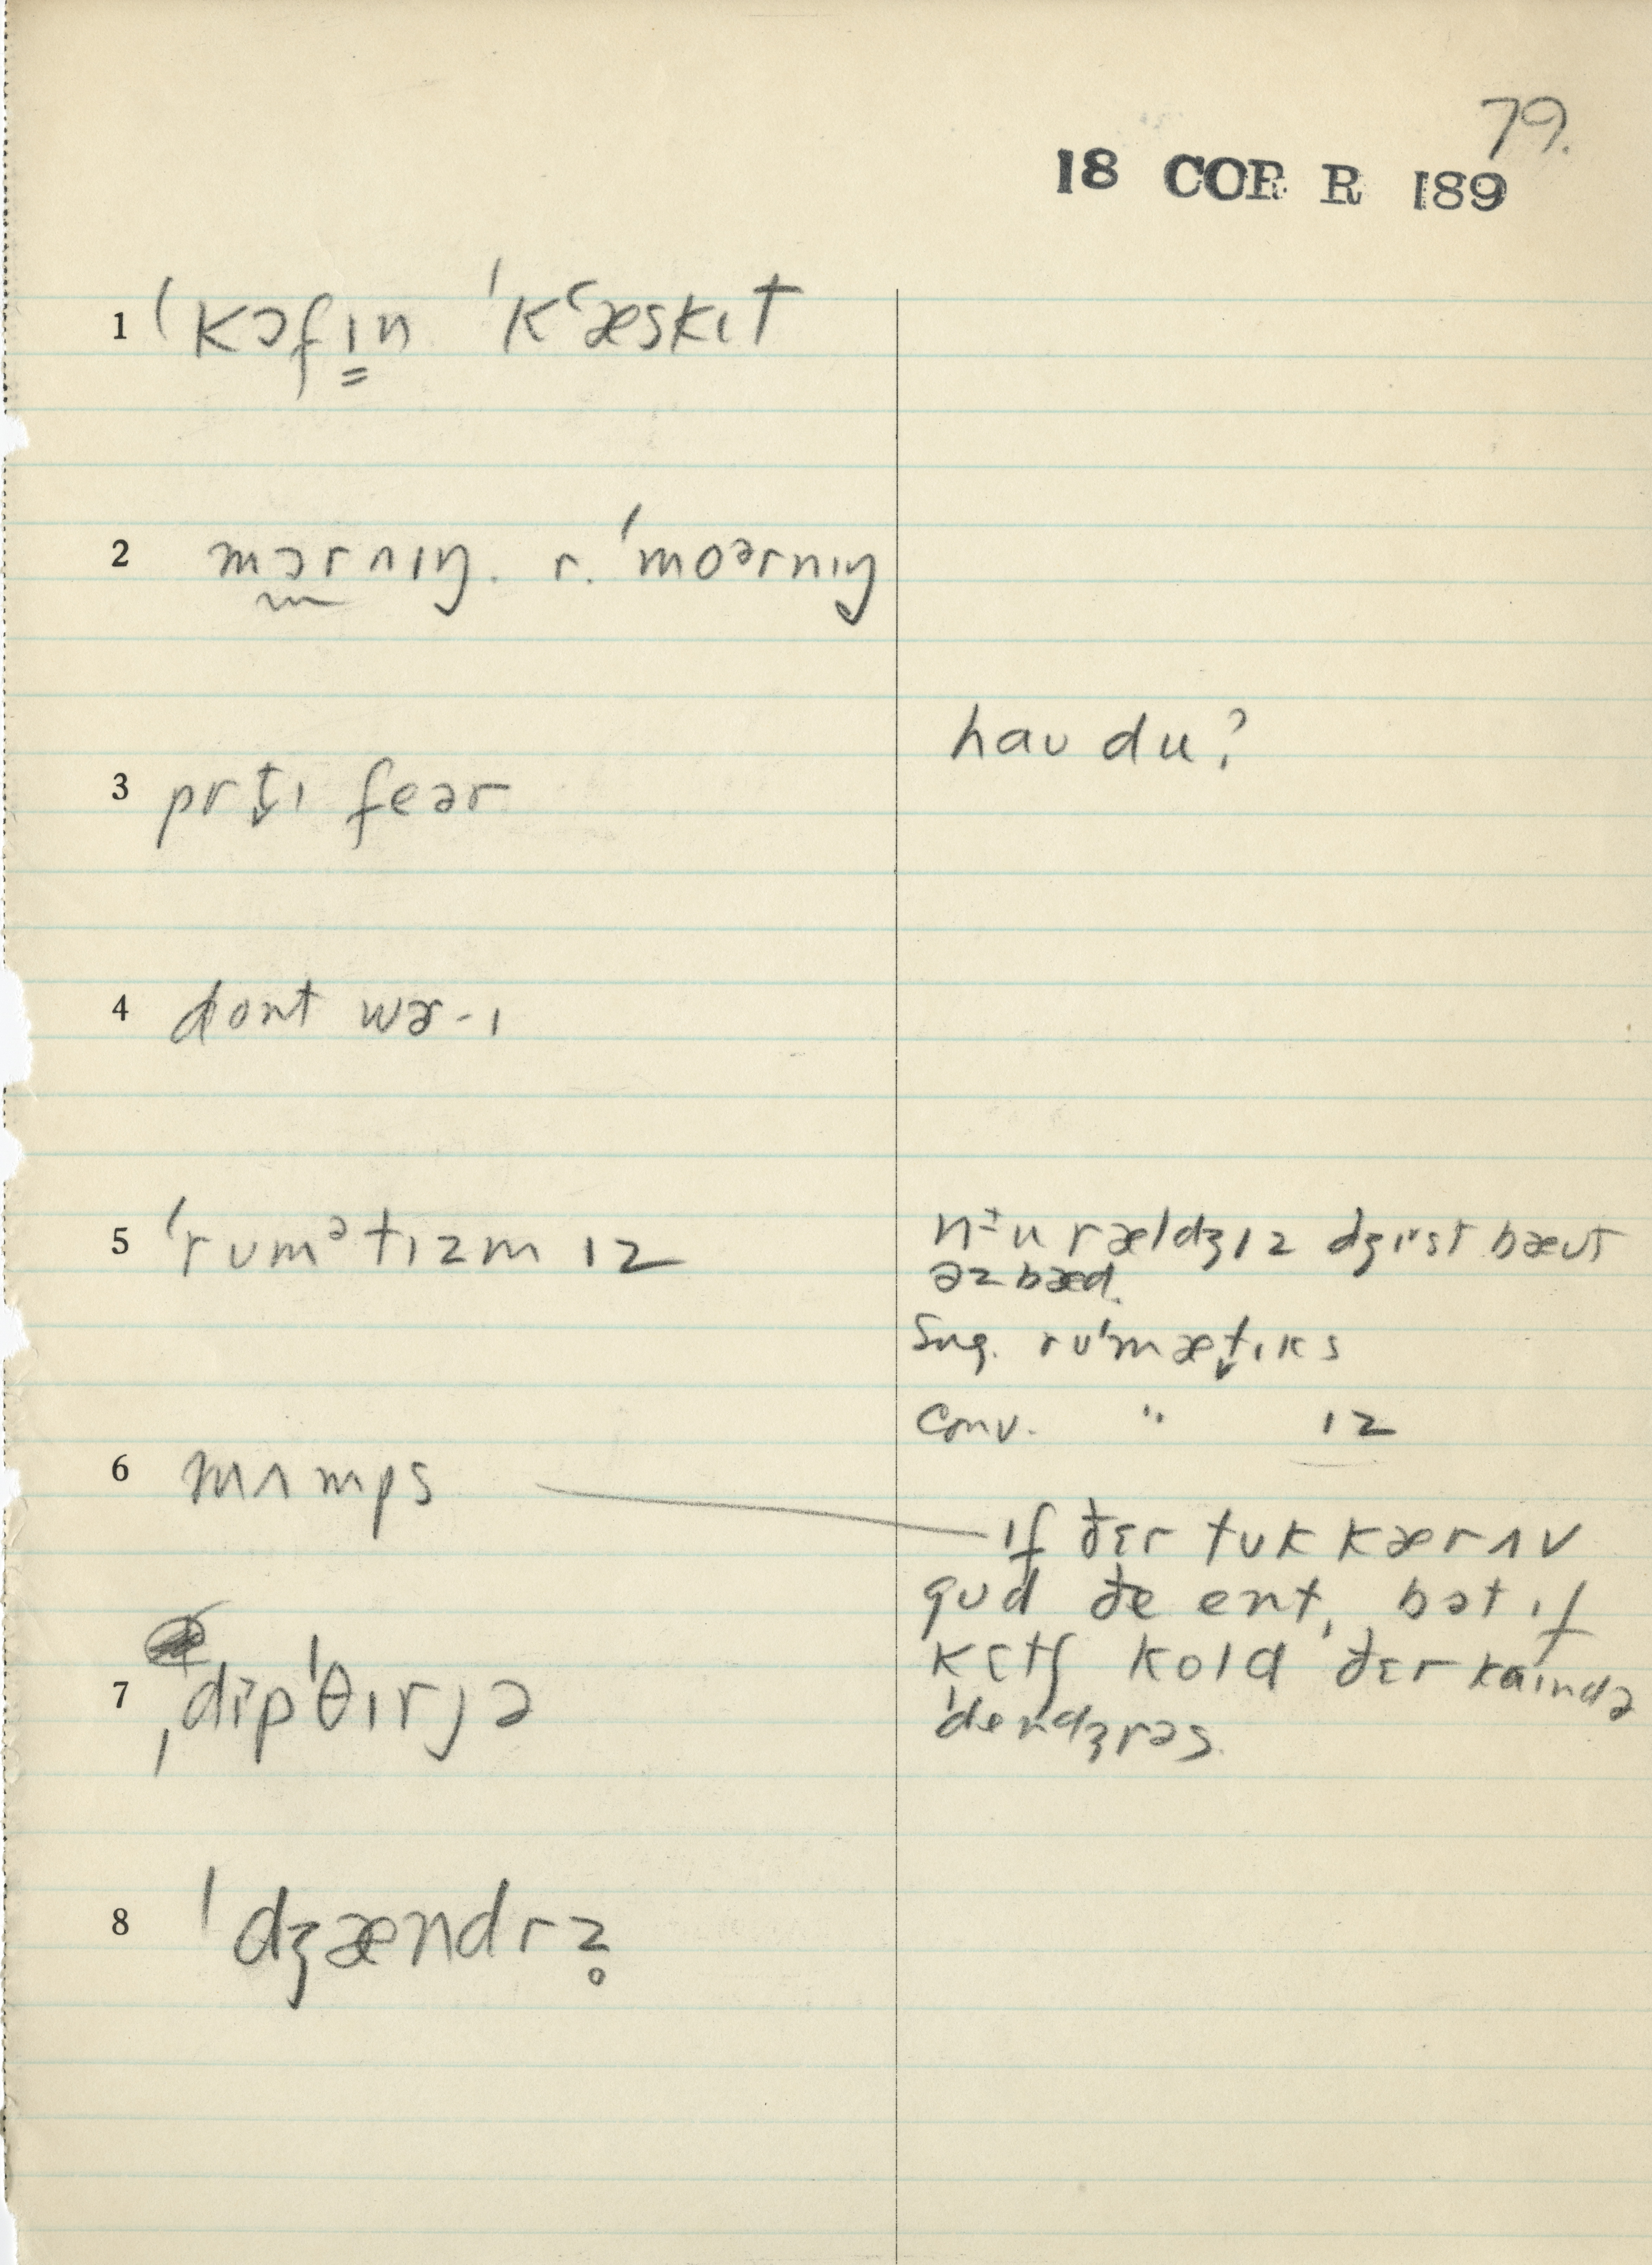 79.
18 COR R 189
1 ˈkɔfɪn ˈkʻæskɪt
2 mɔrnɪŋ. r. ˈmoərnɪŋ
hau du?
3 prt̬ɪ feər
4 dont wɚ-ɪ
5 ˈrʊmətɪzm ɪz
n±u rældʒɪz dʒɪst bæʊt
əz bæd.
Sug. rʊˈmæt̬ɪks
Conv. " ɪz
6 mʌmps
ɪf ðɛr tuk kær ʌv
gud ðe ent, bət ɪf
kɛtʃ kold ðɛr kaɪndə
ˈdendʒrəs.
7 ˌdɪpˈθɪrjə
8 ˈdʒændrz̥